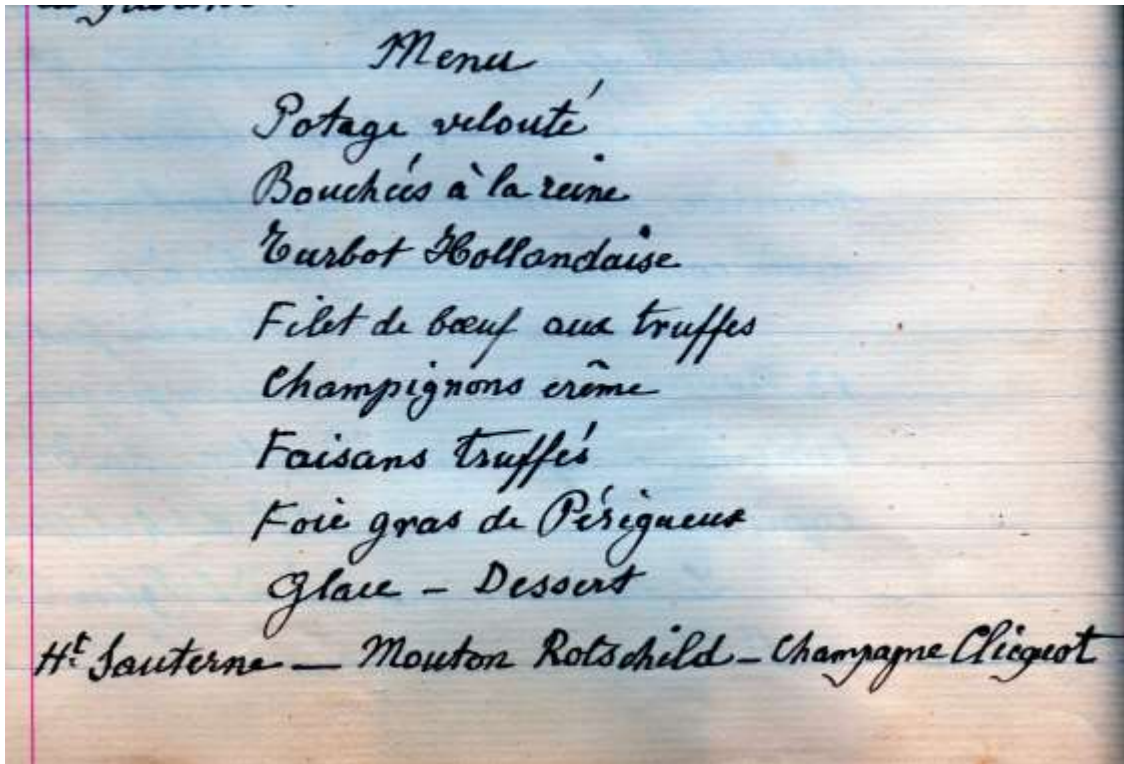 Menu
Potage velouté
Bouchées à la reine
Turbot Hollandaise
Filet de bœuf aux truffes
Champignons crême
Faisans truffés
Foie gras de Périgueux
Glace - Dessert
Ht Sauterne — Mouton Rotschild - Champagne Clicquot